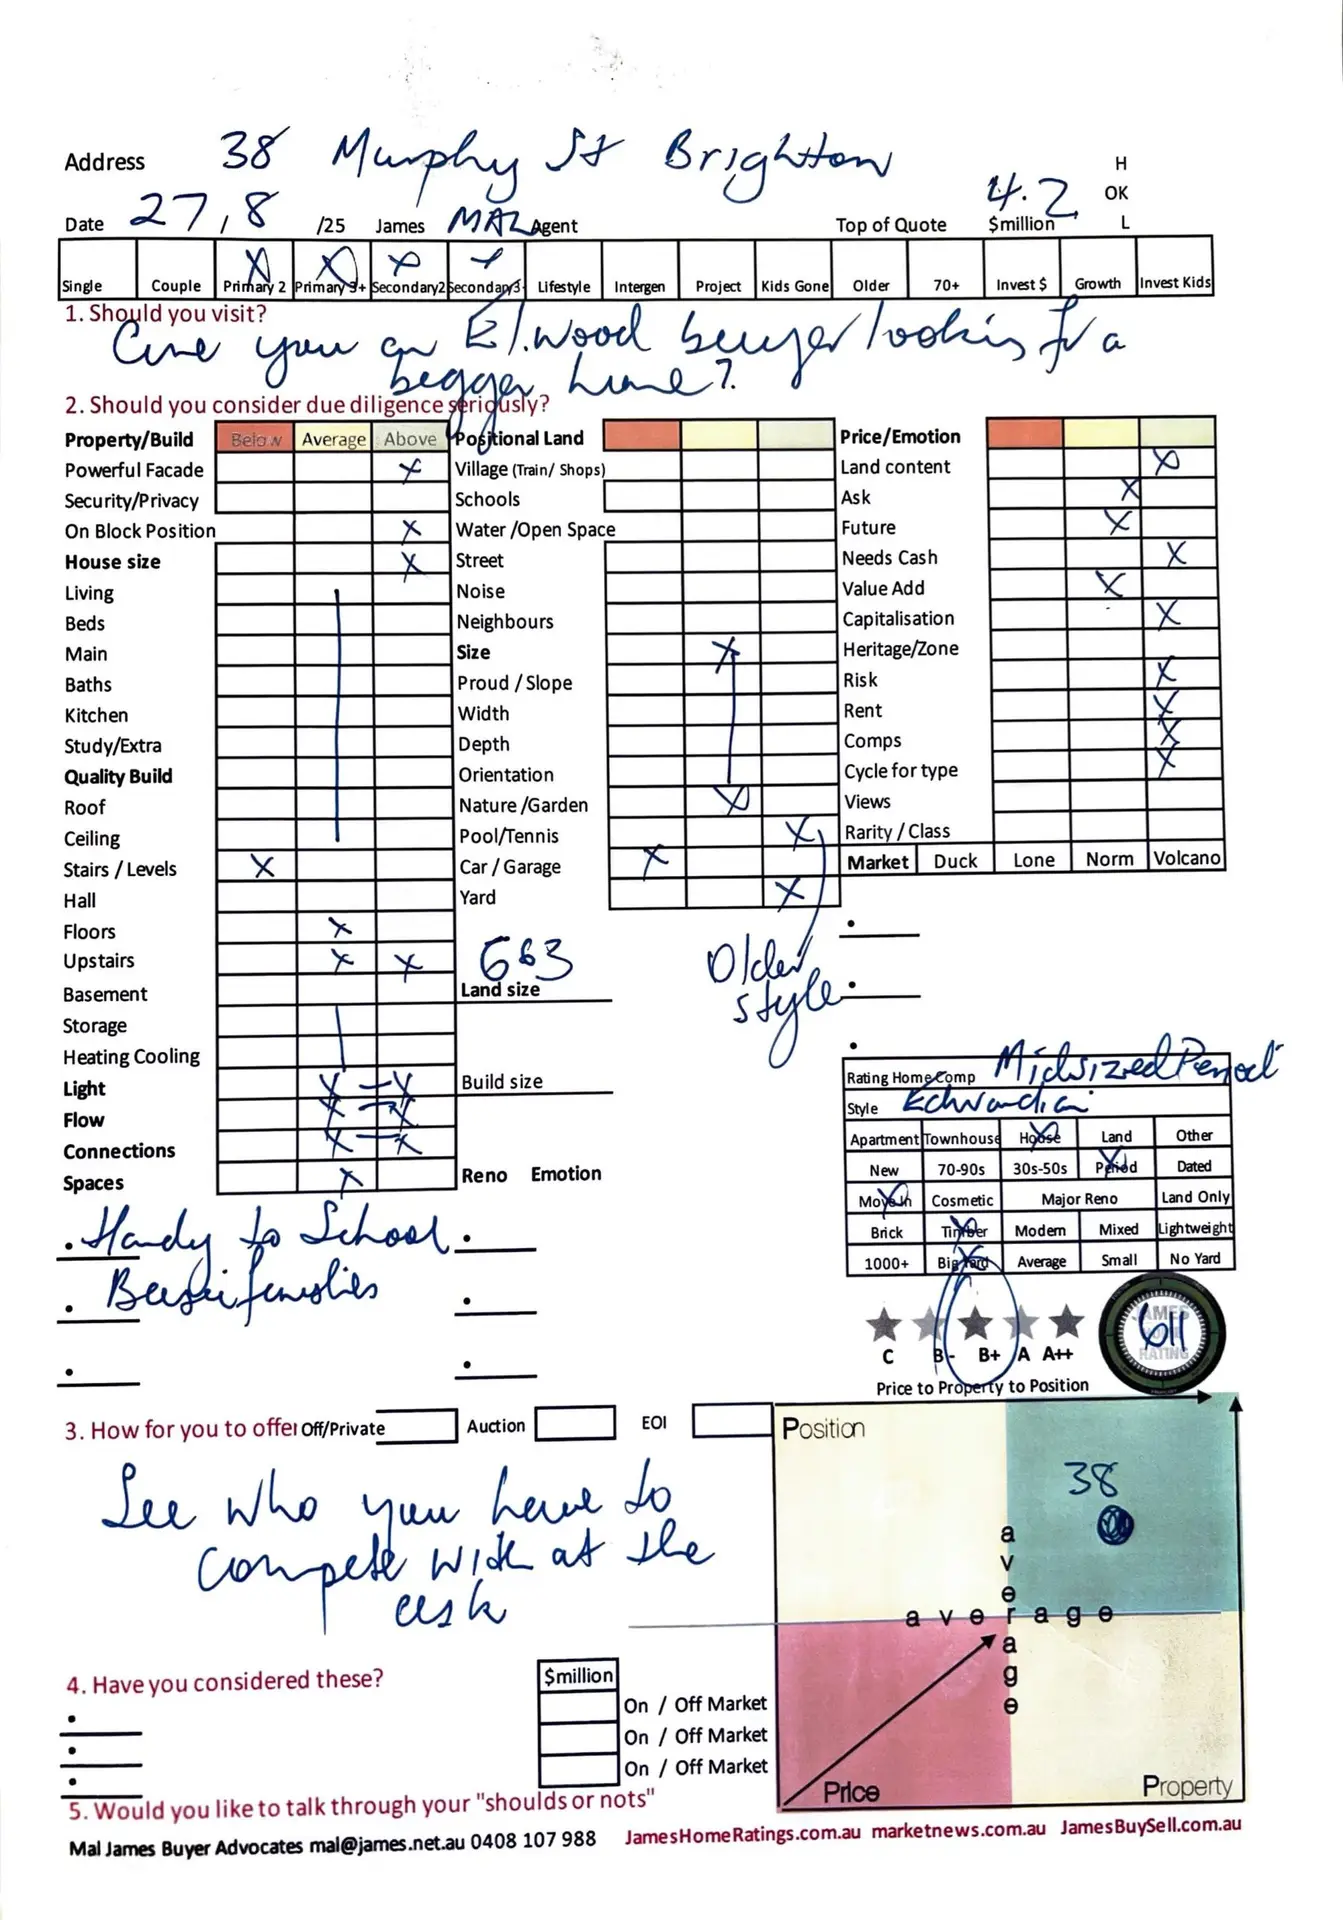 Address 38 Murphy St Brighton H
4.2 OK
Date 27, 8 /25 James MAL Agent Top of Quote $million L
Single Couple Primary 2 Primary 3+ Secondary2 Secondary3+ Lifestyle Intergen Project Kids Gone Older 70+ Invest $ Growth Invest Kids
1. Should you visit?
Are you an Elwood buyer looking for a
bigger home?
2. Should you consider due diligence seriously?
Property/Build Below Average Above Positional Land Price/Emotion
Powerful Facade X Village (Train/ Shops) Land content X
Security/Privacy Schools Ask X
On Block Position X Water /Open Space Future X
House size X Street Needs Cash X
Living Noise Value Add X
Beds Neighbours Capitalisation X
Main Size X Heritage/Zone
Baths Proud / Slope Risk X
Kitchen Width Rent X
Study/Extra Depth Comps X
Quality Build Orientation Cycle for type X
Roof Nature /Garden X Views
Ceiling Pool/Tennis X Rarity / Class
Stairs / Levels X Car / Garage X Market Duck Lone Norm Volcano
Hall Yard X
Floors X
Upstairs X X 663 Older
Basement Land size style
Storage
Heating Cooling
Light X - X Build size Rating Home Comp Midsized Period
Flow X - X Style Edwardian
Connections X - X Apartment Townhouse House Land Other
Spaces X Reno Emotion New 70-90s 30s-50s Period Dated
Move In Cosmetic Major Reno Land Only
Handy to School Brick Timber Modern Mixed Lightweight
Bayside families 1000+ Big Yard Average Small No Yard
JAMES HOME RATING 611
C B- B+ A A++
Price to Property to Position
3. How for you to offer Off/Private Auction EOI
Position
38
See who you have to
compete with at the
ask
average
average
4. Have you considered these? $million
On / Off Market
On / Off Market
On / Off Market
Price Property
5. Would you like to talk through your "shoulds or nots"
Mal James Buyer Advocates mal@james.net.au 0408 107 988 JamesHomeRatings.com.au marketnews.com.au JamesBuySell.com.au